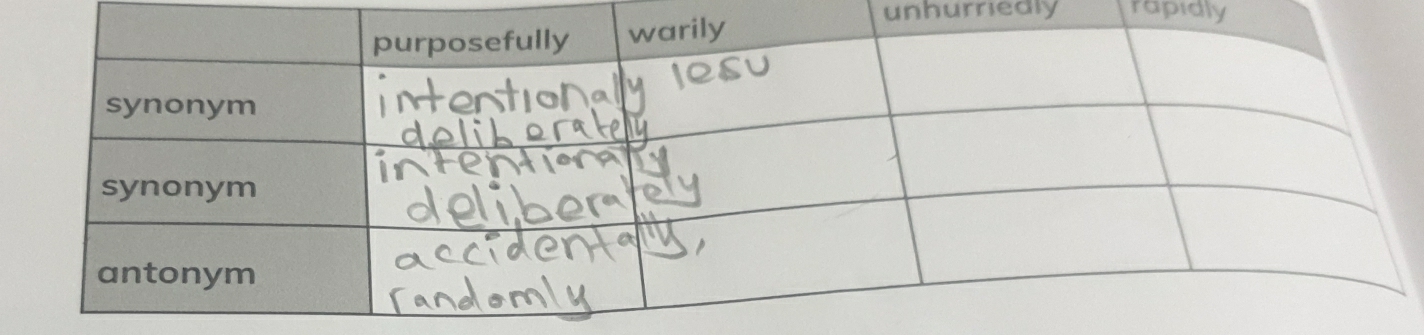 purposefully warily unhurriedly rapidly
synonym intentionaly
deliberately
synonym intentionally
deliberately
antonym accidentally,
randomly